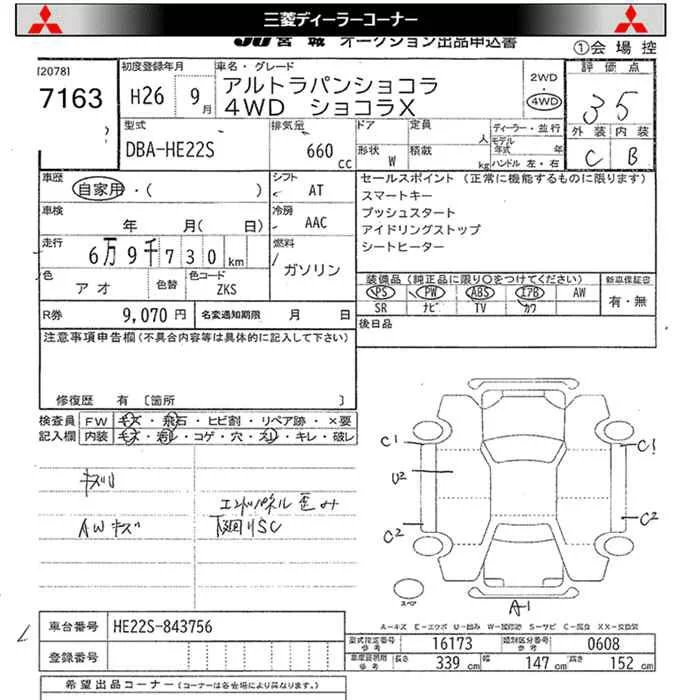 三菱ディーラーコーナー
JU宮城 オークション出品申込書 ①会場控
[2078]
7163
初度登録年月
H26 9月
車名・グレード
アルトラパンショコラ
4WD ショコラX
2WD
・
4WD
評価点
3.5
外装 内装
C B
型式
DBA-HE22S
排気量
660 cc
ドア 定員 人
形状 W 積載 kg
ディーラー・並行
モデル年式 年
ハンドル 左・右
車歴
自家用・( )
シフト
AT
車検
年 月( 日)
冷房
AAC
走行
6万9千730km
燃料
ガソリン
色
アオ
色替
色コード
ZKS
セールスポイント (正常に機能するものに限ります)
スマートキー
プッシュスタート
アイドリングストップ
シートヒーター
装備品(純正品に限り○をつけてください) 新車保証書
PS PW ABS エアB AW 有・無
SR ナビ TV カワ
R券 9,070円 名変通知期限 月 日
後日品
注意事項申告欄(不具合内容等は具体的に記入して下さい)
修復歴 有 〔箇所 〕
検査員記入欄
FW キズ・飛石・ヒビ割・リペア跡・×要
内装 キズ・汚レ・コゲ・穴・スレ・キレ・破レ
AWキズ
エンドパネル歪み
下廻りSC
C1 C1
U2
C2 C2
A-1
スペア
A-キズ E-エクボ U-凹み W-補修跡 S-サビ C-腐食 XX-交換済
車台番号 HE22S-843756
登録番号
型式指定番号 参考 16173 類別区分番号 参考 0608
車庫証明用 参考 長さ 339cm 幅 147cm 高さ 152cm
希望出品コーナー(コーナーは各会場により異なります。)